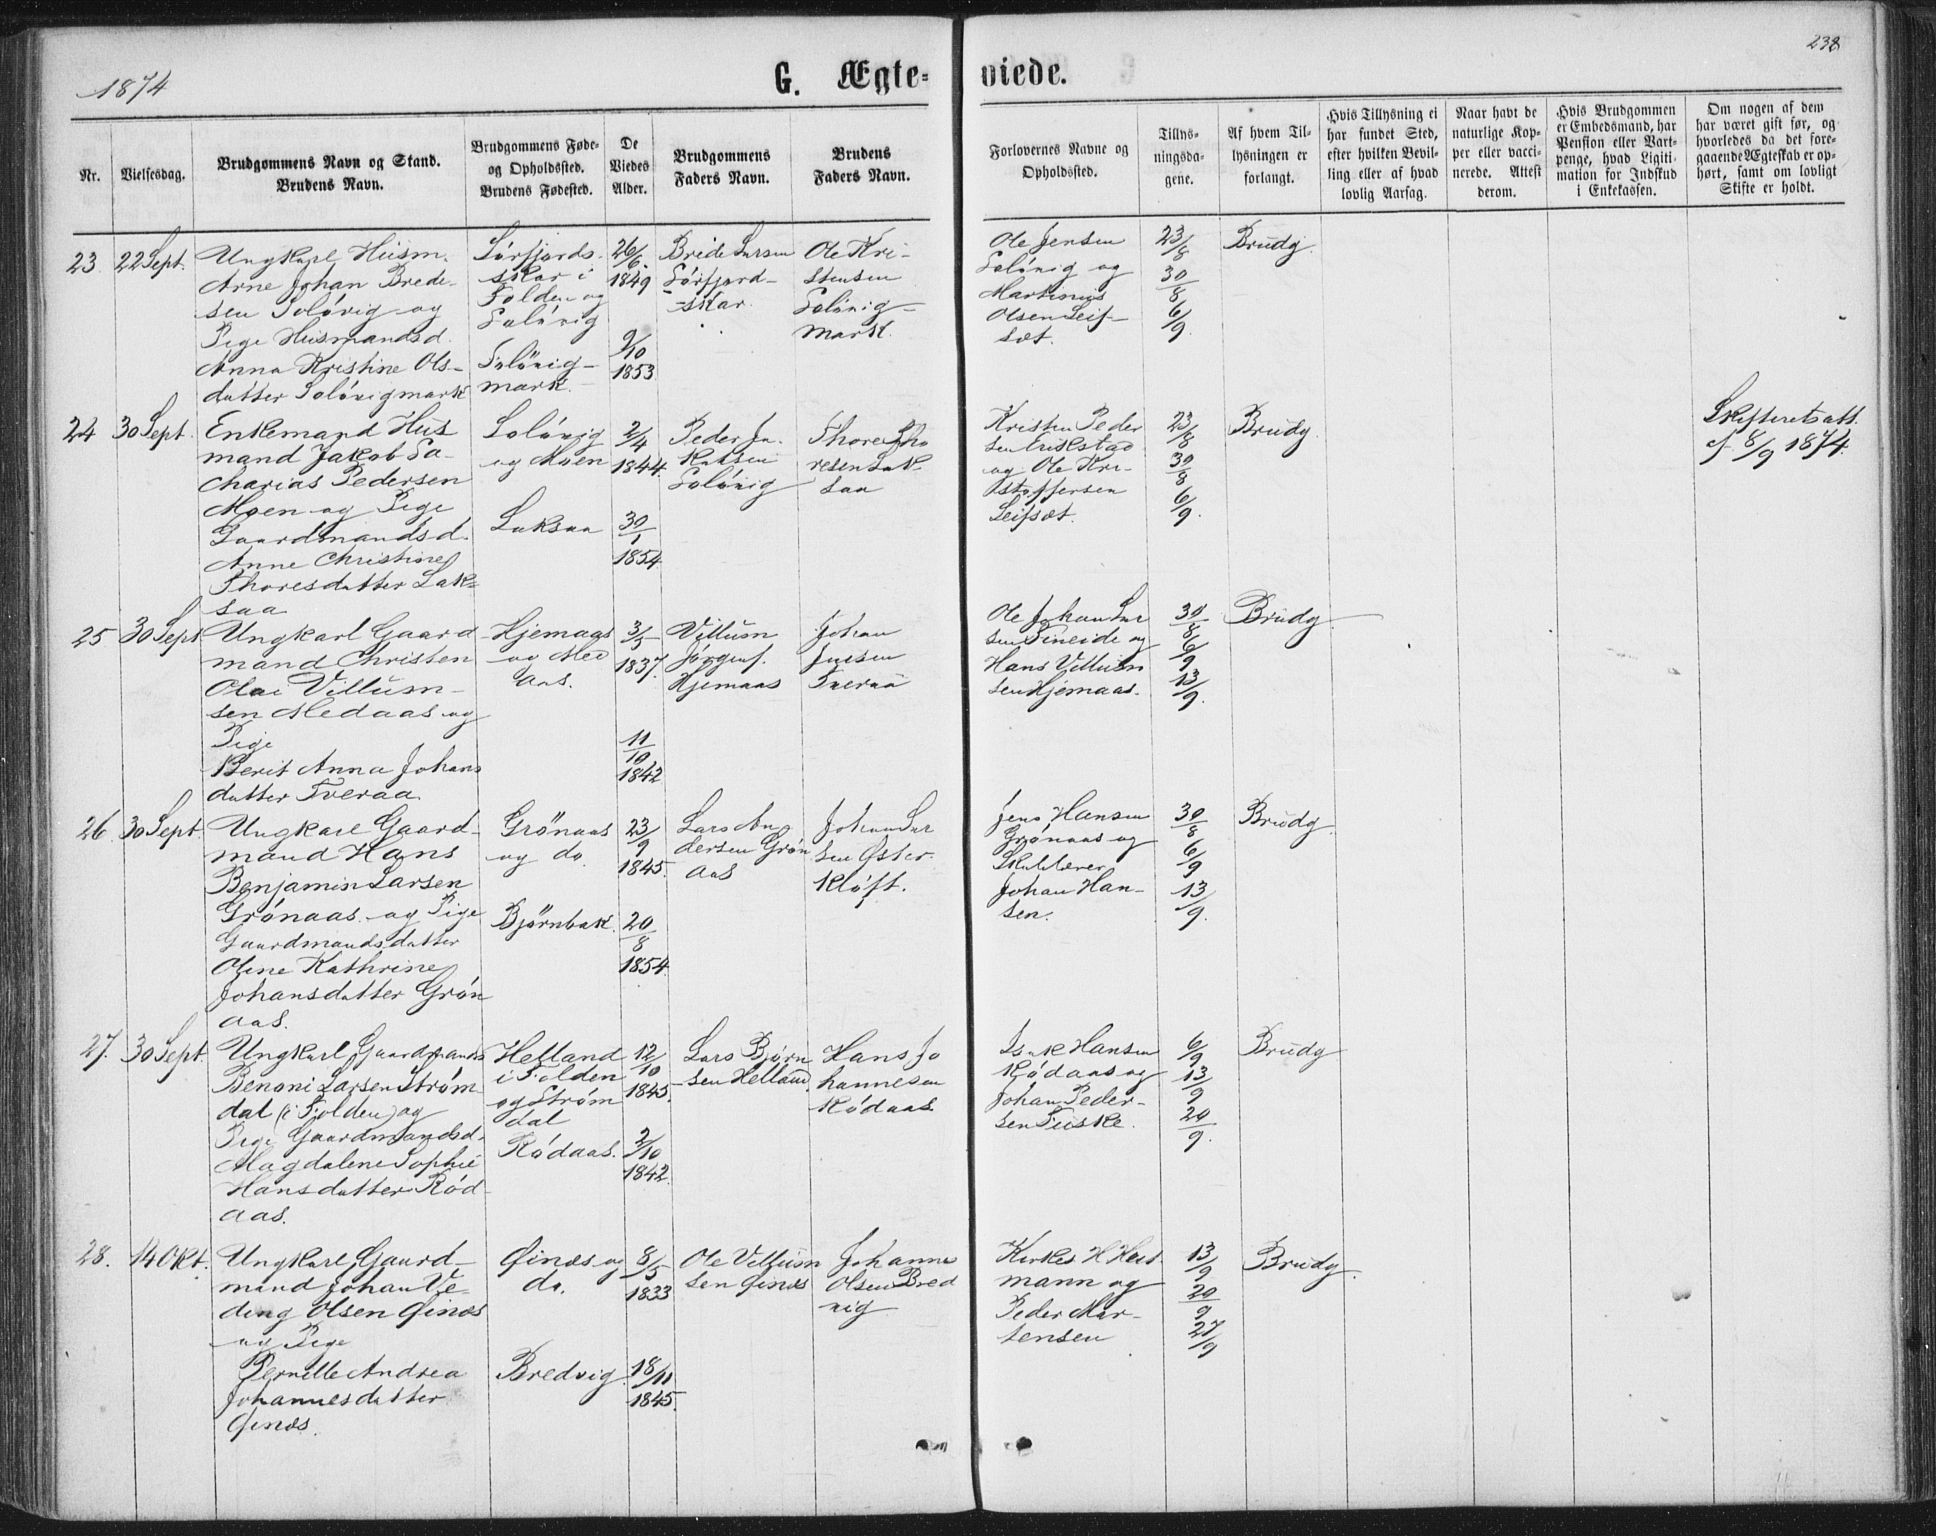 1874
G. Ægte-
viede.
238
Nr.
Vielsesdag.
Brudgommens Navn og Stand.
Brudens Navn.
Brudgommens Føde-
og Opholdssted.
Brudens Fødested.
De
Viedes
Alder.
Brudgommens
Faders Navn.
Brudens
Faders Navn.
Forlovernes Navne og
Opholdssted.
Tillys-
ningsda-
gene.
Af hvem Til-
lysningen er
forlangt.
Hvis Tillysning ei
har fundet Sted,
efter hvilken Bevil-
ling eller af hvad
lovlig Aarsag.
Naar havt de
naturlige Kop-
per eller vacci-
nerede. Attest
derom.
Hvis Brudgommen
er Embedsmand, har
Pension eller Vart-
penge, hvad Ligiti-
mation for Indskud
i Enkekassen.
Om nogen af dem
har været gift før, og
hvorledes da det fore-
gaaende Ægteskab er op-
hørt, samt om lovligt
Skifte er holdt.
23.
22 Sept.
Ungkarl Husm.
Arne Johan Brede-
sen Solövig og
Pige Husmandsd.
Anna Kristine Ols-
datter Solövigmark
Sørfjords-
skar i
Folden og
Solövig
Solövig-
mark.
26/6
1849
9/10
1853
Brede Larsen
Sørfjord-
skar.
Ole Kri-
stensen
Solövig-
mark.
Ole Jensen
Solövig og
Martinus
Olsen Leif-
sæt.
23/8
30/8
6/9.
Brudg.
24
30 Sept.
Enkemand Hus
mand Jakob Sa-
charias Pedersen
Moen og Pige
Gaardmandsd.
Anne Christine
Thoresdatter Lak-
saa
Solövig
og Moen
Laksaa
2/4
1844.
30/1
1854.
Peder Ja-
kobsen
Solövig
Thore Tho
resen Lak-
saa
Kristen Peder
sen Erikstad
og Ole Kri-
stoffersen
Leifsæt.
23/8
30/8
6/9.
Brudg.
Skifteretsatt.
af 8/9 1874.
25
30 Sept
Ungkarl Gaard
mand Christen
Olai Villum-
sen Medaas og
Pige
Berit Anna Johans
datter Tveraa.
Hjemaas
og Med
aas.
3/5
1837.
11/10
1842
Villum
Jørgens.
Hjemaas
Johan
Tveraa
Ole Johan Lar
sen Fineide og
Hans Villum
sen Hjemaas.
30/8
6/9
13/9.
Brudg
26
30 Sept.
Ungkarl Gaard-
mand Hans
Benjamin Larsen
Grönaas og Pige
Gaardmandsdatter
Oline Kathrine
Johansdatter Grön
aas.
Grönaas
og do.
Björnbak.
23/9
1845.
20/8
1854.
Lars An-
dersen Grön
aas
Johan Lar
sen Øster-
kløft.
Jens Hansen
Grönaas og
Skolelærer
Johan Han-
sen.
30/8
6/9
13/9.
Brudg.
27.
30 Sept.
Ungkarl Gaardmands
Benoni Larsen Ström
dal (i Folden) og
Pige Gaardmandsd.
Magdalene Sophie
Hansdatter Röd-
aas.
Helland
i Folden
og Ström
dal
Rödaas.
12/10
1845.
2/10
1842.
Lars Björn
sen Helland.
Hans Jo
hannesen
Rödaas.
Isak Hansen
Rödaas og
Johan Peder-
sen Fuske.
6/9
13/9
20/9.
Brudg
28.
14 Okt.
Ungkarl Gaard-
mand Johan Ve-
ding Olsen Øines
og Pige
Pernelle Andrea
Johannesdatter
Øines.
Øines og
do.
Bredvig.
8/5
1833
18/11
1845.
Ole Villum
sen Øines
Johannes
Olsen Bred
vig
Kirkes. H. Hart
mann og
Peder Mor-
tensen
13/9
20/9
27/9
Brudg.